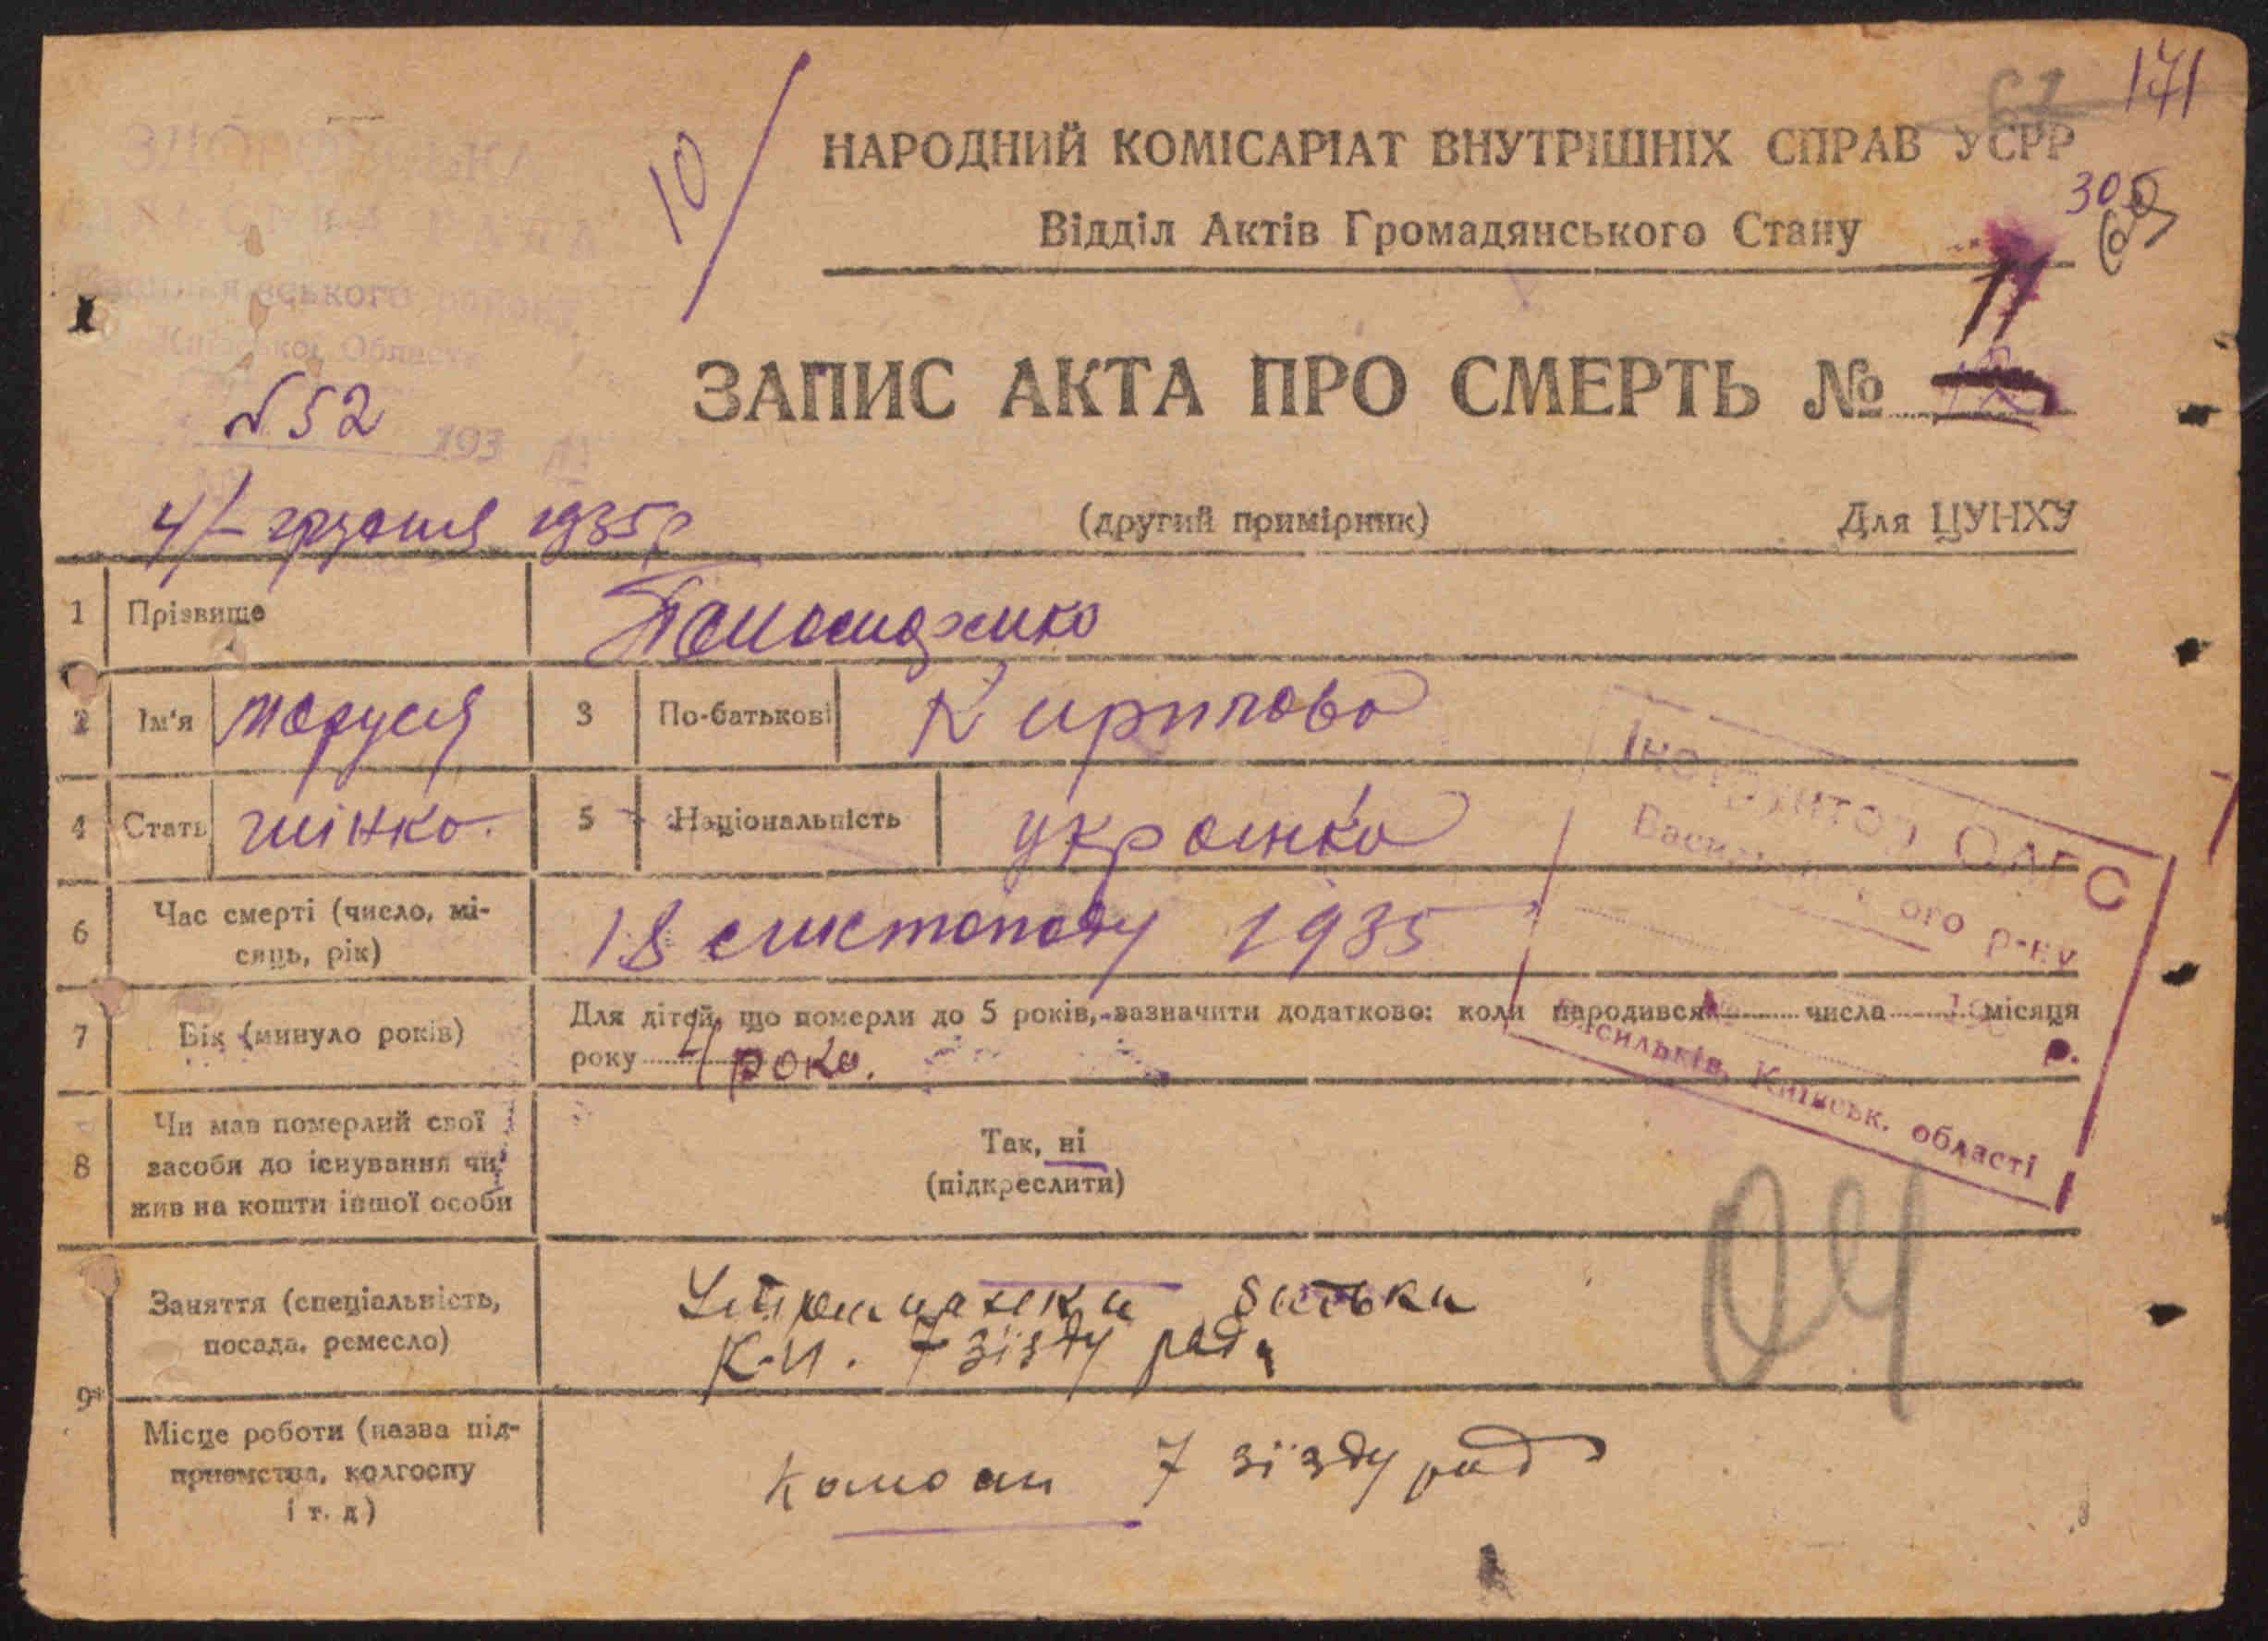 171
НАРОДНИЙ КОМІСАРІАТ ВНУТРІШНІХ СПРАВ УСРР
10/
Відділ Актів Громадянського Стану
СІЛЬСЬКА РАДА
району
Київської Області
11
ЗАПИС АКТА ПРО СМЕРТЬ №
№ 52
193
4/ грудня 1935 р
(другий примірник)
Для ЦУНХУ
1 Прізвище
2 Ім'я Маруся 3 По-батькові Кирилова
4 Стать жінка. 5 Національність українка
Інспектор ОАГС
Васильківського р-ну
6 Час смерті (число, мі-
сяць, рік) 18 листопаду 1935
7 Вік (минуло років) Для дітей, що померли до 5 років, зазначити додатково: коли народився числа місяця
року 4 роки. р.
Васильків, Київськ. області
8 Чи мав померлий свої
засоби до існування чи
жив на кошти іншої особи
Так, ні
(підкреслити)
04
9 Заняття (спеціальність,
посада, ремесло)
Утриманка батька
7 зїзду рад
Місце роботи (назва під-
приємства, колгоспу
і т. д)
7 зїзду рад